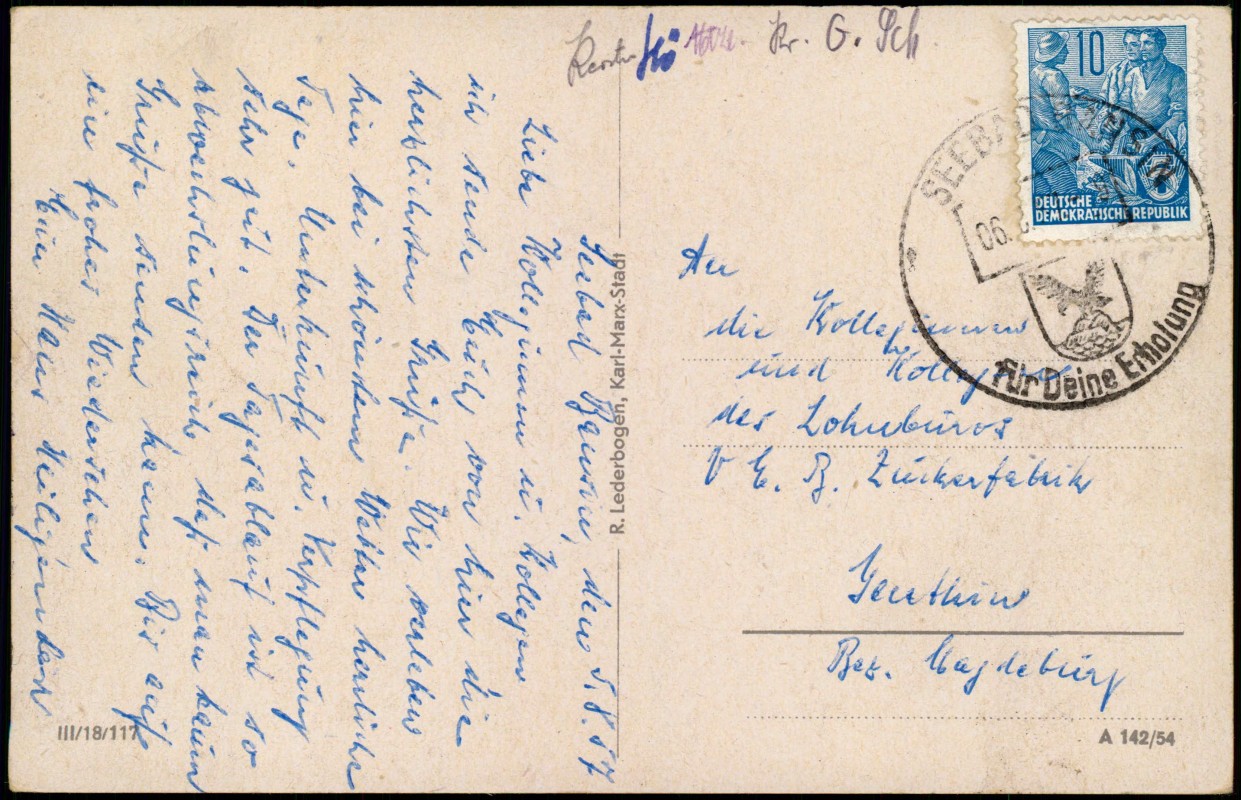 Seebad Bansin, den 5.8.57
Liebe Kolleginnen u. Kollegen
ich sende Euch von hier die
herzlichsten Grüße. Wir verleben
hier bei schönstem Wetter herrliche
Tage. Unterkunft u. Verpflegung
sehr gut. Der Tagesablauf ist so
abwechslungsreich daß man kaum
Grüße senden kann. Bis auf
ein frohes Wiedersehen
Euer Hans Heiligendorf
III/18/117
R. Lederbogen, Karl-Marx-Stadt
Kr. G. Sch.
10
DEUTSCHE
DEMOKRATISCHE REPUBLIK
SEEBAD BANSIN
06.
für Deine Erholung
An
die Kolleginnen
und Kollegen
des Lohnbüros
V E. B. Zuckerfabrik
Genthin
Bez. Magdeburg
A 142/54